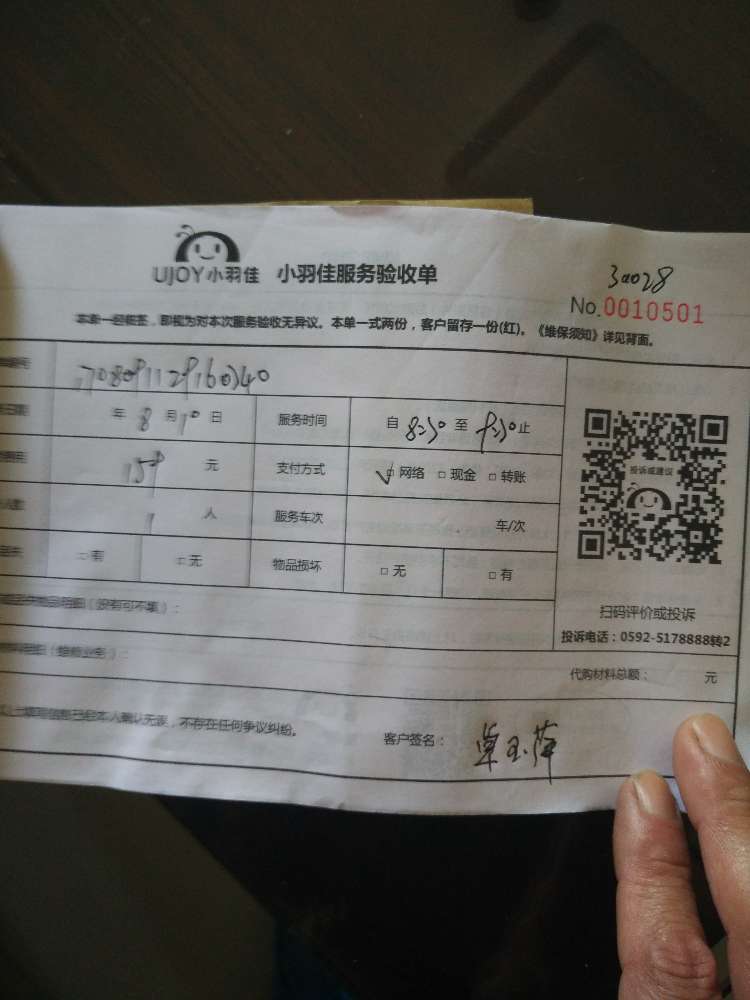 UJOY小羽佳 小羽佳服务验收单
30028
No.0010501
本单一经签签，即视为对本次服务验收无异议。本单一式两份，客户留存一份(红)。《维保须知》详见背面。
年 8 月 10 日 服务时间 自 8:30 至 9:30 止
159 元 支付方式 ✓□网络 □现金 □转账
1 人 服务车次 车/次
□有 □无 物品损坏 □无 □有
投诉或建议
扫码评价或投诉
投诉电话：0592-5178888转2
(没有可不填)：
(维修业务)：
代购材料总额： 元
以上填写信息已经本人确认无误，不存在任何争议纠纷。 客户签名： 卓玉萍